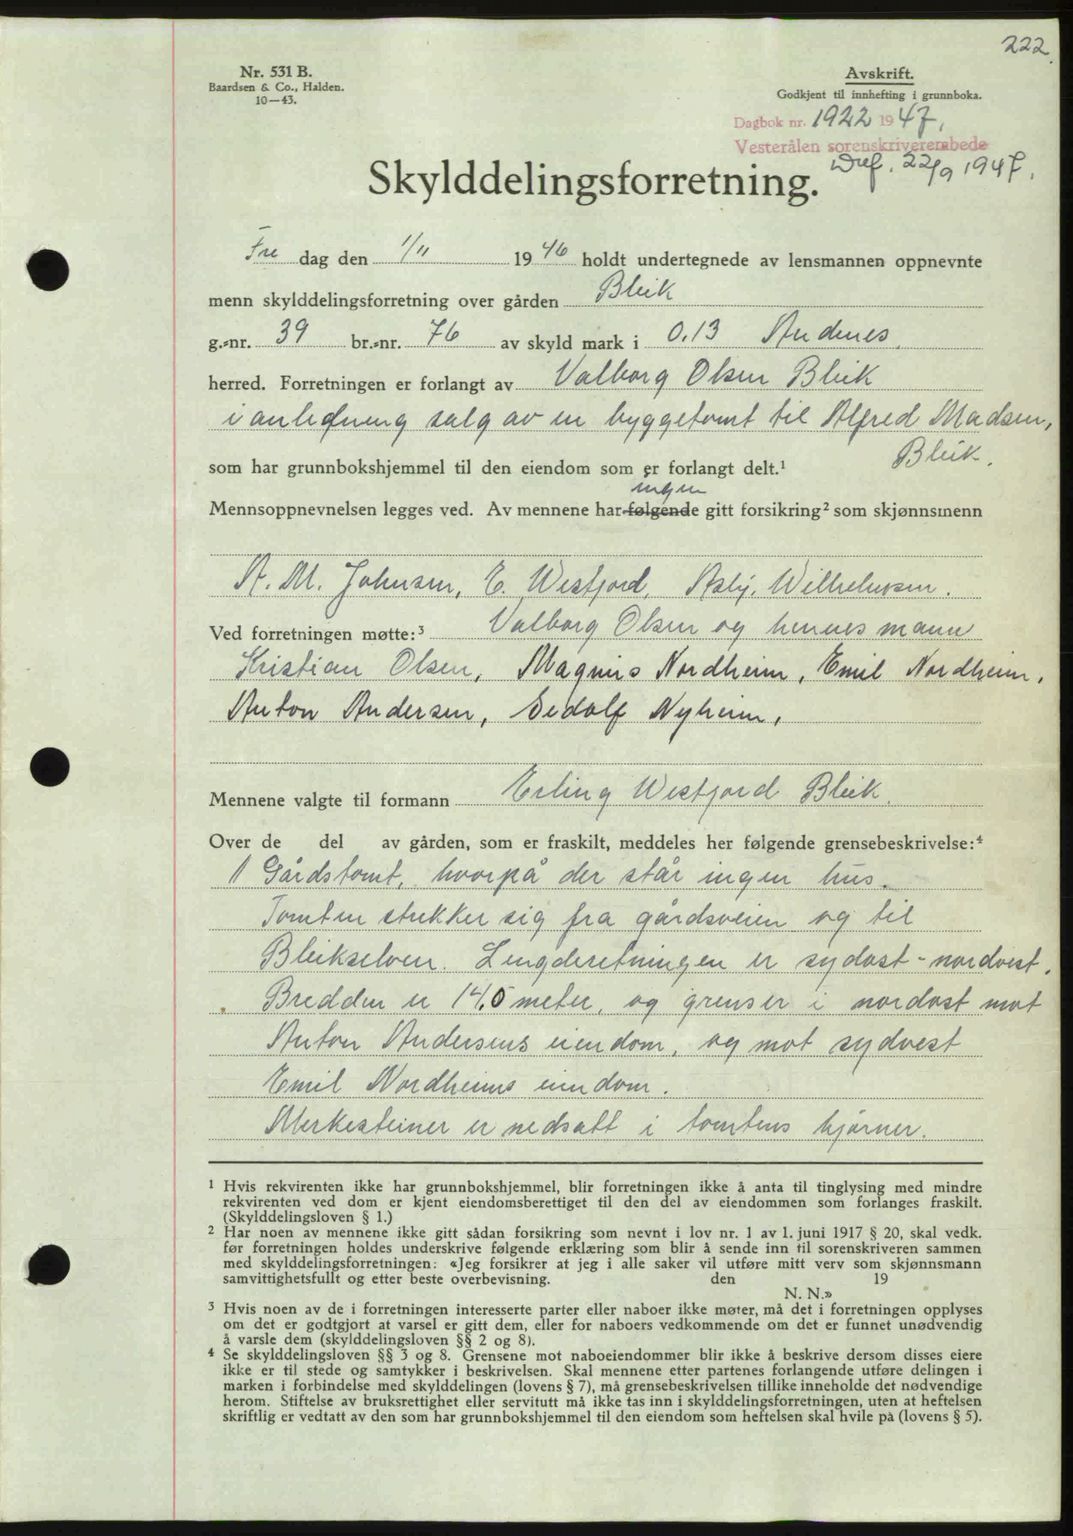 222.
Nr. 531 B.
Baardsen & Co., Halden.
10—43.
Avskrift.
Godkjent til innhefting i grunnboka.
Dagbok nr. 1922 1947.
Vesterålen sorenskriverembede
22/9 1947.
Skylddelingsforretning.
Fre dag den 1/11 1946 holdt undertegnede av lensmannen oppnevnte
menn skylddelingsforretning over gården Bleik
g.-nr. 39 br.-nr. 76 av skyld mark i 0,13 Andenes
herred. Forretningen er forlangt av Valborg Olsen Bleik
i anledning salg av en byggetomt til Alfred Madsen,
Bleik.
som har grunnbokshjemmel til den eiendom som er forlangt delt.¹
ingen
Mennsoppnevnelsen legges ved. Av mennene har følgende gitt forsikring² som skjønnsmenn
A. M. Johnsen, E. Westfjord, Asbj. Wilhelmsen.
Ved forretningen møtte:³ Valborg Olsen og hennes mann
Kristian Olsen, Magnus Nordheim, Emil Nordheim,
Anton Andersen, Nyheim,
Mennene valgte til formann Erling Westfjord Bleik.
Over de del av gården, som er fraskilt, meddeles her følgende grensebeskrivelse:⁴
1 Gårdstomt, hvorpå der står ingen hus.
Tomten strekker sig fra gårdsveien og til
Bleikselven. Lengderetningen er sydost - nordvest.
Bredden er 14,5 meter, og grenser i nordost mot
Anton Andersens eiendom, og mot sydvest
Emil Nordheims eiendom.
Merkesteiner er nedsatt i tomtens hjørner.
¹ Hvis rekvirenten ikke har grunnbokshjemmel, blir forretningen ikke å anta til tinglysing med mindre
rekvirenten ved dom er kjent eiendomsberettiget til den del av eiendommen som forlanges fraskilt.
(Skylddelingsloven § 1.)
² Har noen av mennene ikke gitt sådan forsikring som nevnt i lov nr. 1 av 1. juni 1917 § 20, skal vedk.
før forretningen holdes underskrive følgende erklæring som blir å sende inn til sorenskriveren sammen
med skylddelingsforretningen: «Jeg forsikrer at jeg i alle saker vil utføre mitt verv som skjønnsmann
samvittighetsfullt og etter beste overbevisning. den 19
N. N.»
³ Hvis noen av de i forretningen interesserte parter eller naboer ikke møter, må det i forretningen opplyses
om det er godtgjort at varsel er gitt dem, eller for naboers vedkommende om det er funnet unødvendig
å varsle dem (skylddelingsloven §§ 2 og 8).
⁴ Se skylddelingsloven §§ 3 og 8. Grensene mot naboeiendommer blir ikke å beskrive dersom disses eiere
ikke er til stede og samtykker i beskrivelsen. Skal mennene etter partenes forlangende utføre delingen i
marken i forbindelse med skylddelingen (lovens § 7), må grensebeskrivelsen tillike inneholde det nødvendige
herom. Stiftelse av bruksrettighet eller servitutt må ikke tas inn i skylddelingsforretningen, uten at heftelsen
skriftlig er vedtatt av den som har grunnbokshjemmel til den eiendom som heftelsen skal hvile på (lovens § 5).